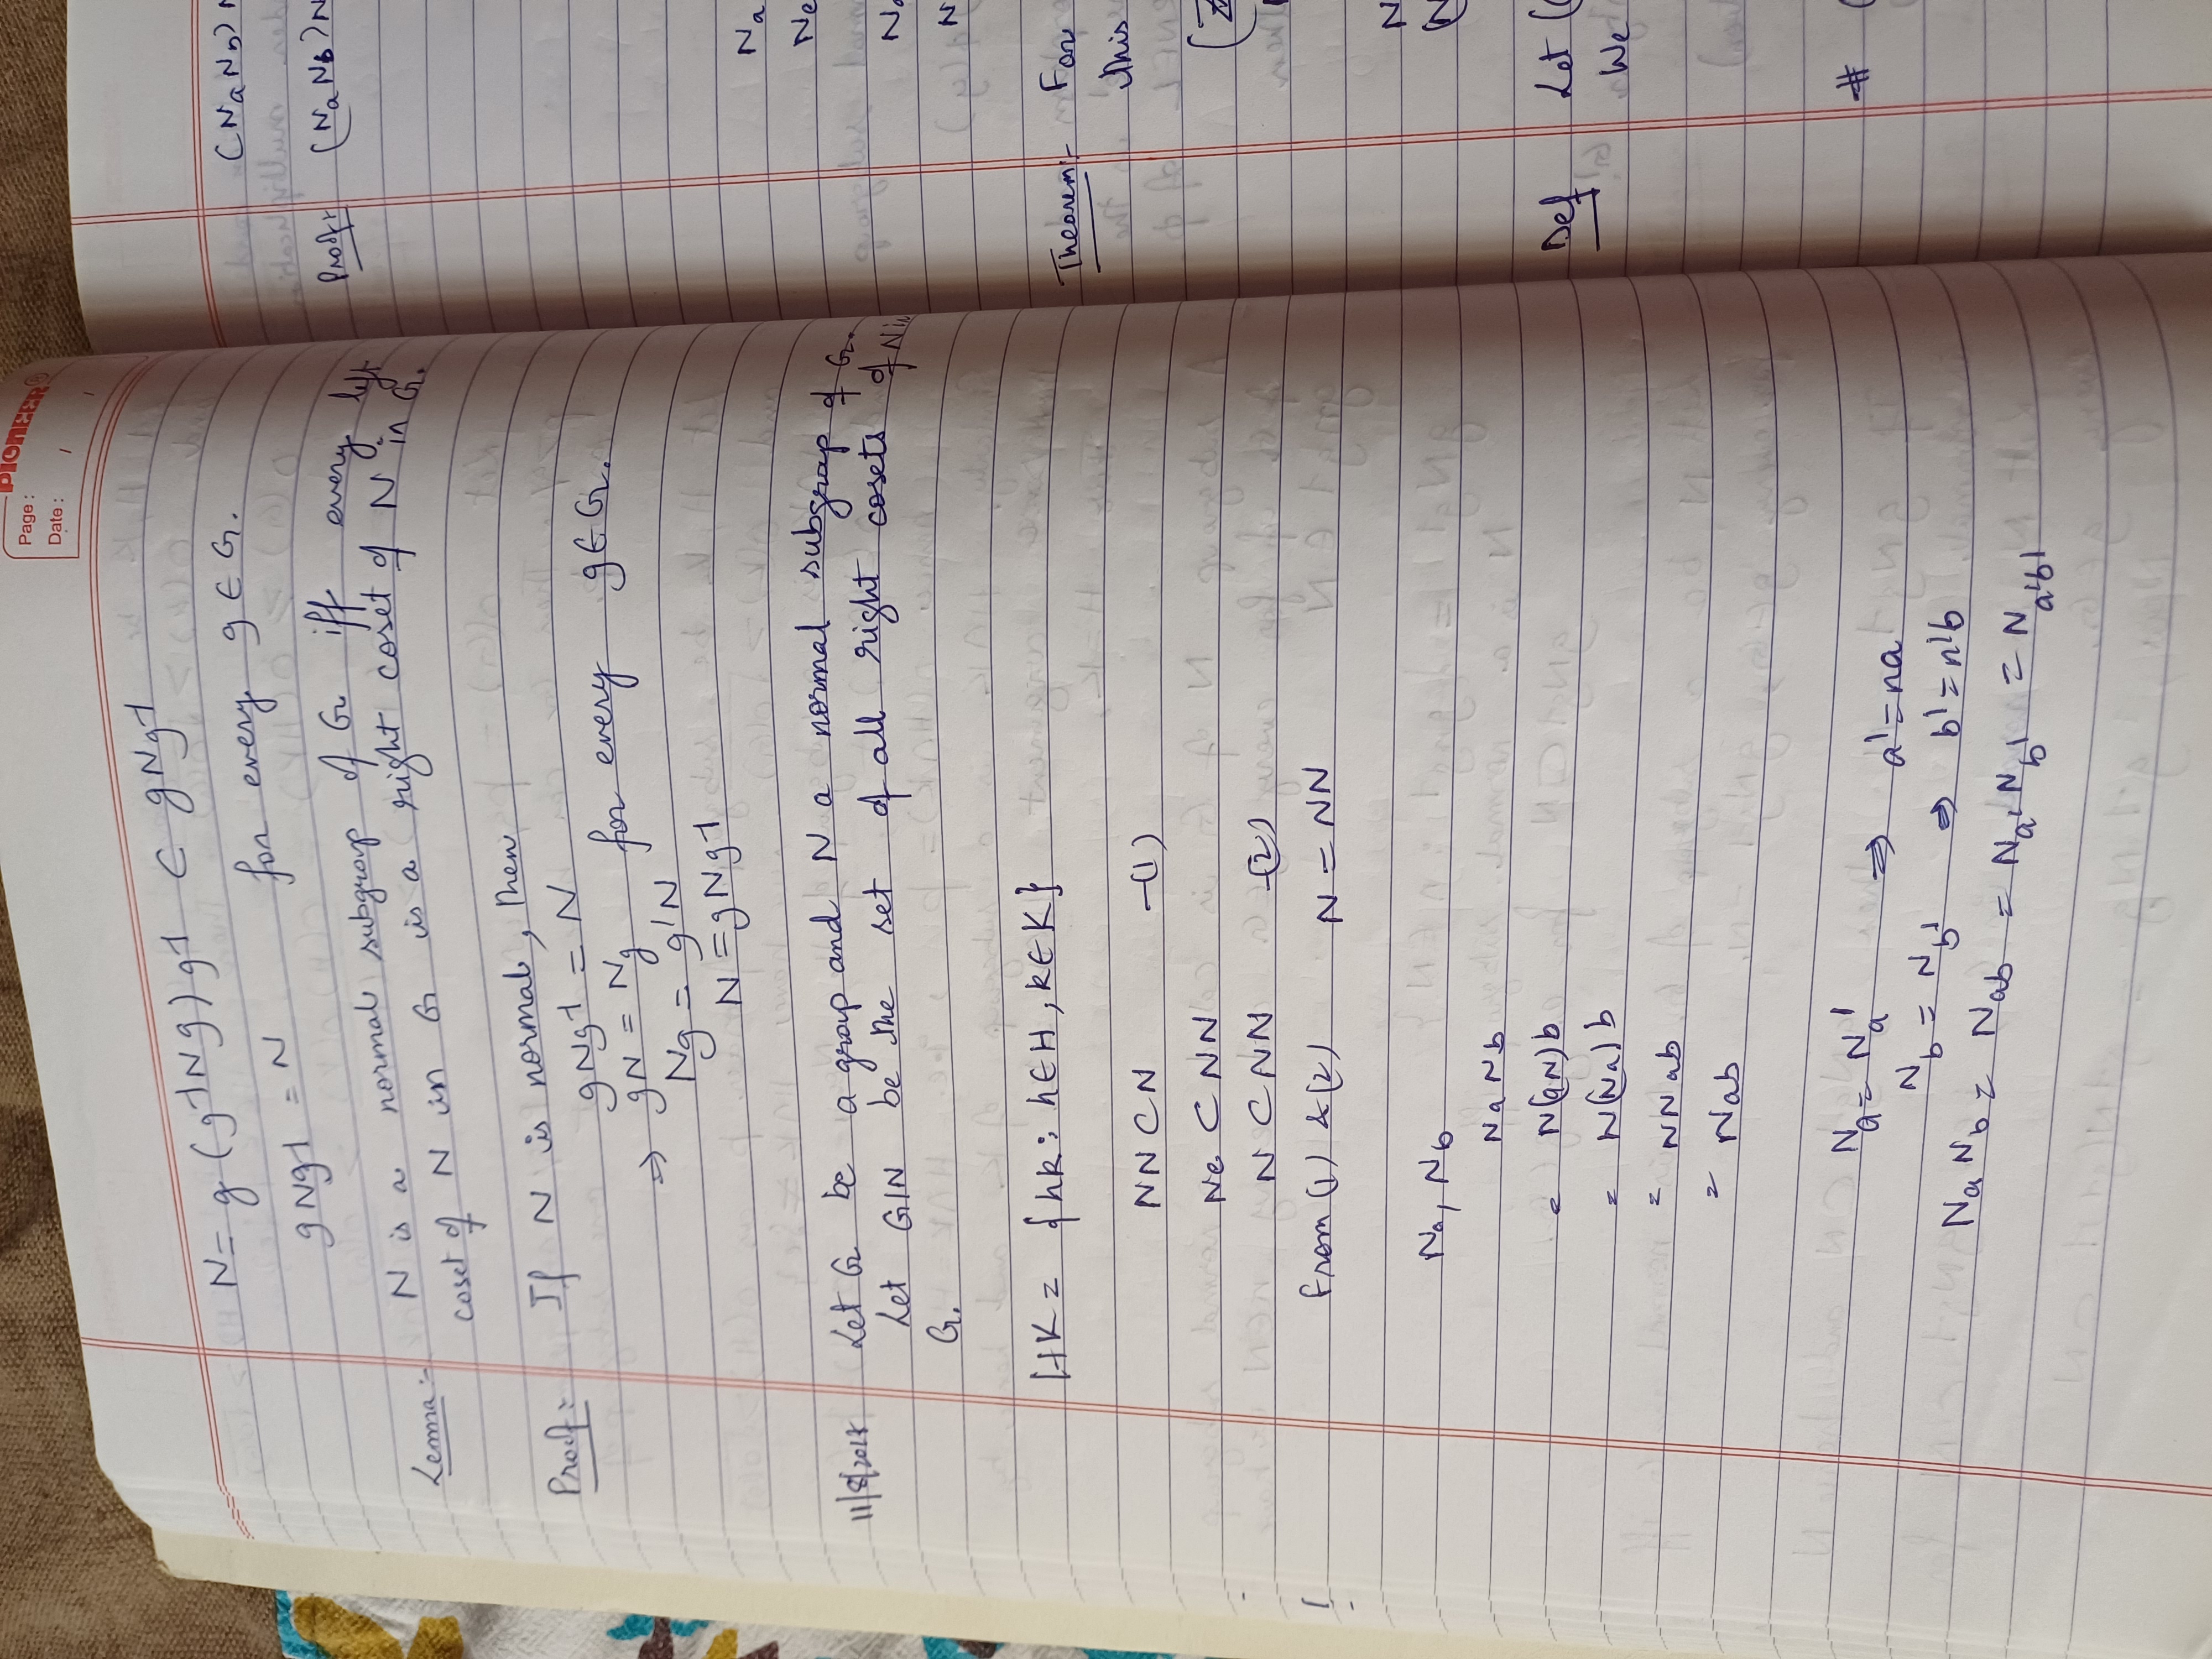 PIONEER
Page :
Date :
N = g(g-1Ng)g-1 ⊂ gNg-1
gNg-1 = N for every g ∈ G.
Lemma:- N is a normal subgroup of G iff every left
coset of N in G is a right coset of N in G.
Proof:- If N is normal, then
gNg-1 = N
⇒ gN = Ng for every g ∈ G.
Ng = g'N
N = gNg-1
Let G be a group and N a normal subgroup of G.
Let G|N be the set of all right cosets of N in
G.
HK = {hk : h∈H, k∈K}
NN ⊂ N -(1)
Ne ⊂ NN
N ⊂ NN -(2)
From (1) & (2) N = NN
Na, Nb
NaNb
= N(aN)b
= N(Na)b
= NNab
= Nab
Na = Na' ⇒ a' = na
Nb = Nb' ⇒ b' = n'b
NaNb = Nab = Na'Nb' = Na'b'
(NaNb)
Proof:- (NaNb)N
Na
Ne
N
Theorem:- For
this
N
(N
Def Let (
We
#